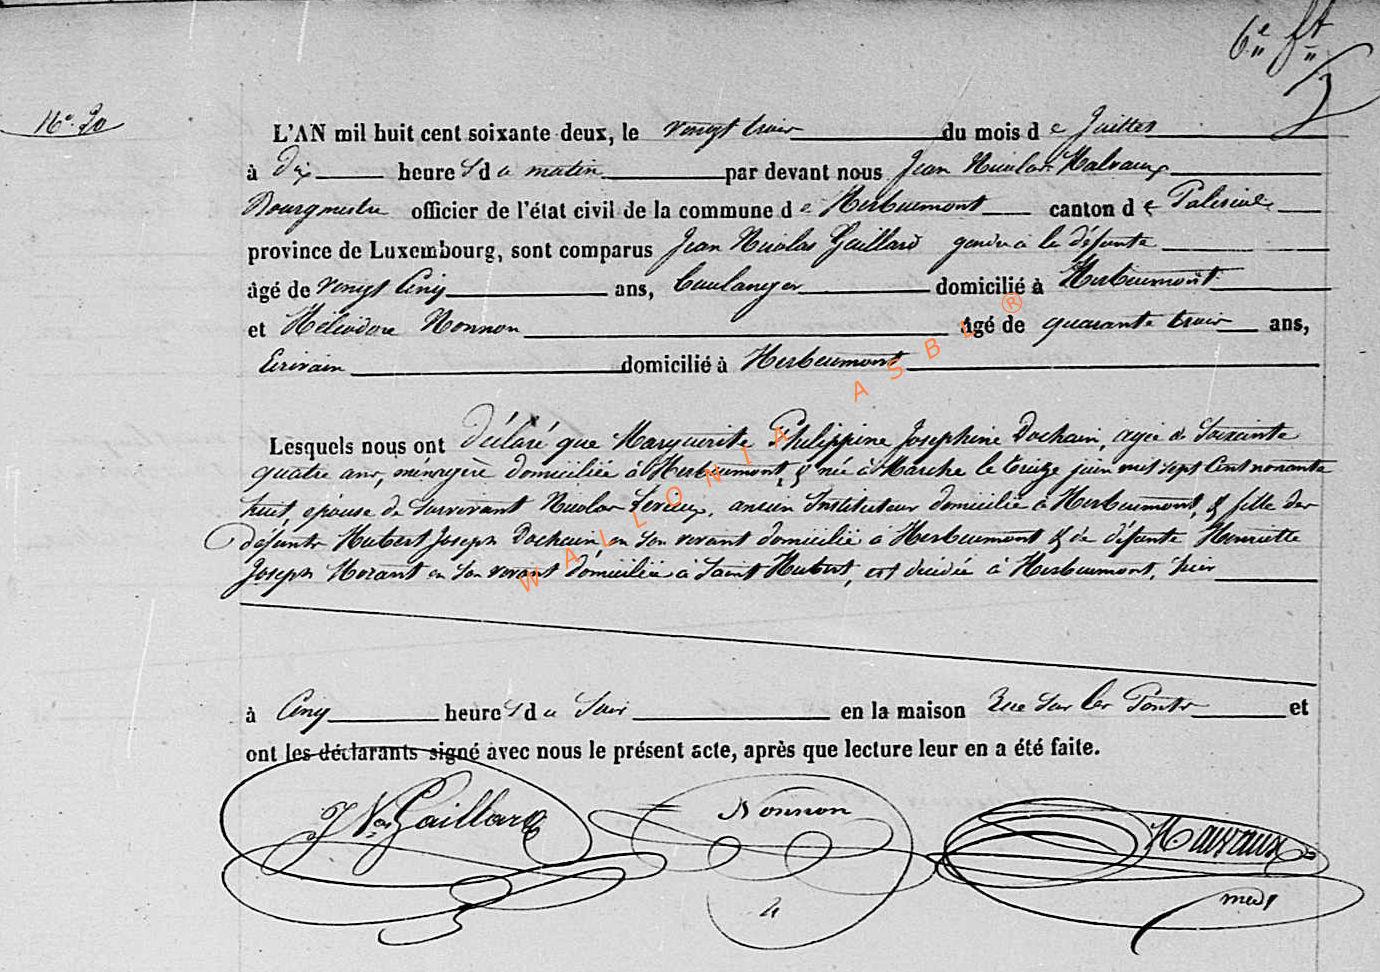 6e ft
No. 20
L'AN mil huit cent soixante deux, le vingt trois du mois de Juillet
à Dix heures du matin par devant nous Jean Nicolas Malvaux
Bourgmestre officier de l'état civil de la commune de Herbeumont canton de Paliseul
province de Luxembourg, sont comparus Jean Nicolas Gaillard gendre à la défunte
âgé de vingt Cinq ans, boulanger domicilié à Herbeumont
et Héliodore Nonnon âgé de quarante trois ans,
Ecrivain domicilié à Herbeumont
Lesquels nous ont déclaré que Marguerite Philippine Josephine Dochain, agée de Soixante
quatre ans, ménagère domiciliée à Herbeumont, & née à Marche le treize juin mil sept Cent nonante
huit, épouse de survivant Nicolas Lerieux, ancien Instituteur domicilié à Herbeumont, & fille des
défunts Hubert Joseph Dochain en Son vivant domicilié à Herbeumont & de défunte Henriette
Joseph Morant en Son vivant domiciliée à Saint Hubert, est décédée à Herbeumont, hier
à Cinq heures du Soir en la maison Rue Sur les Ponts et
ont les déclarants signé avec nous le présent acte, après que lecture leur en a été faite.
J Nas Gaillard Nonnon Malvaux
WALLONIA ASBL ®